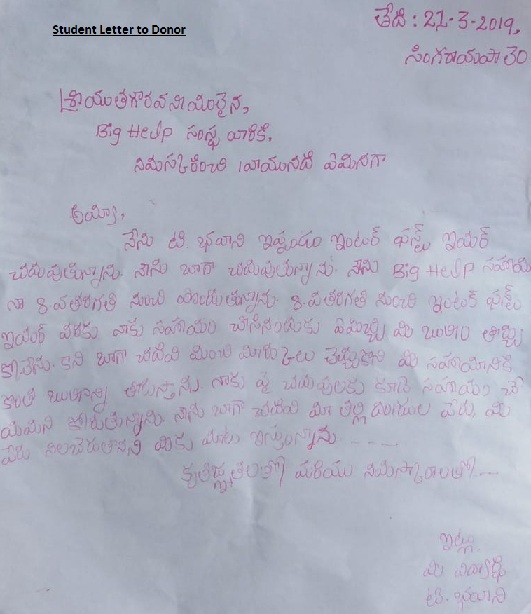 Student Letter to Donor
తేది : 21-3-2019,
సింగరాయపాలెం
శ్రీయుత గౌరవనీయులైన,
Big Help సంస్థ వారికి,
నమస్కరించి వ్రాయునది ఏమనగా
అయ్యా,
నేను టి. భవాని ఇప్పుడు ఇంటర్ ఫస్ట్ ఇయర్
చదువుతున్నాను నేను బాగా చదువుతున్నాను. నేను Big Help సహాయం
నా 8వ తరగతి నుంచి పొందుతున్నాను 8వ తరగతి నుంచి ఇంటర్ ఫస్ట్
ఇయర్ వరకు నాకు సహాయం చేసినందుకు ఏమిచ్చి మీ ఋణం తీర్చు
కోగలను. కాని బాగా చదివి మంచి మార్కులు తెచ్చుకొని మీ సహాయానికి
కొంత ఋణాన్ని తీరుస్తాను నాకు పై చదువులకు కూడా సహాయం చే
యమని కోరుతున్నాను నేను బాగా చదివి మా తల్లి దండ్రుల పేరు, మీ
పేరు నిలబెడతానని మీకు మాట ఇస్తున్నాను ..........
కృతజ్ఞతలతో మరియు నమస్కారాలతో....
ఇట్లు
మీ విద్యార్థి
టి. భవాని